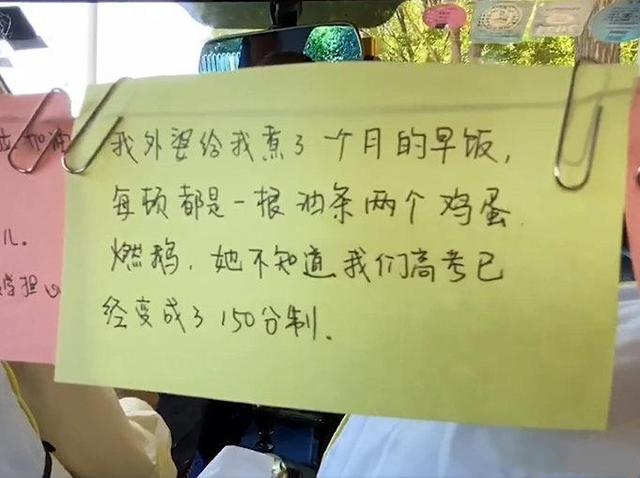 加油
儿.
担心
我外婆给我煮了个月的早饭，
每顿都是一根油条两个鸡蛋.
燃鹅，她不知道我们高考已
经变成了150分制.